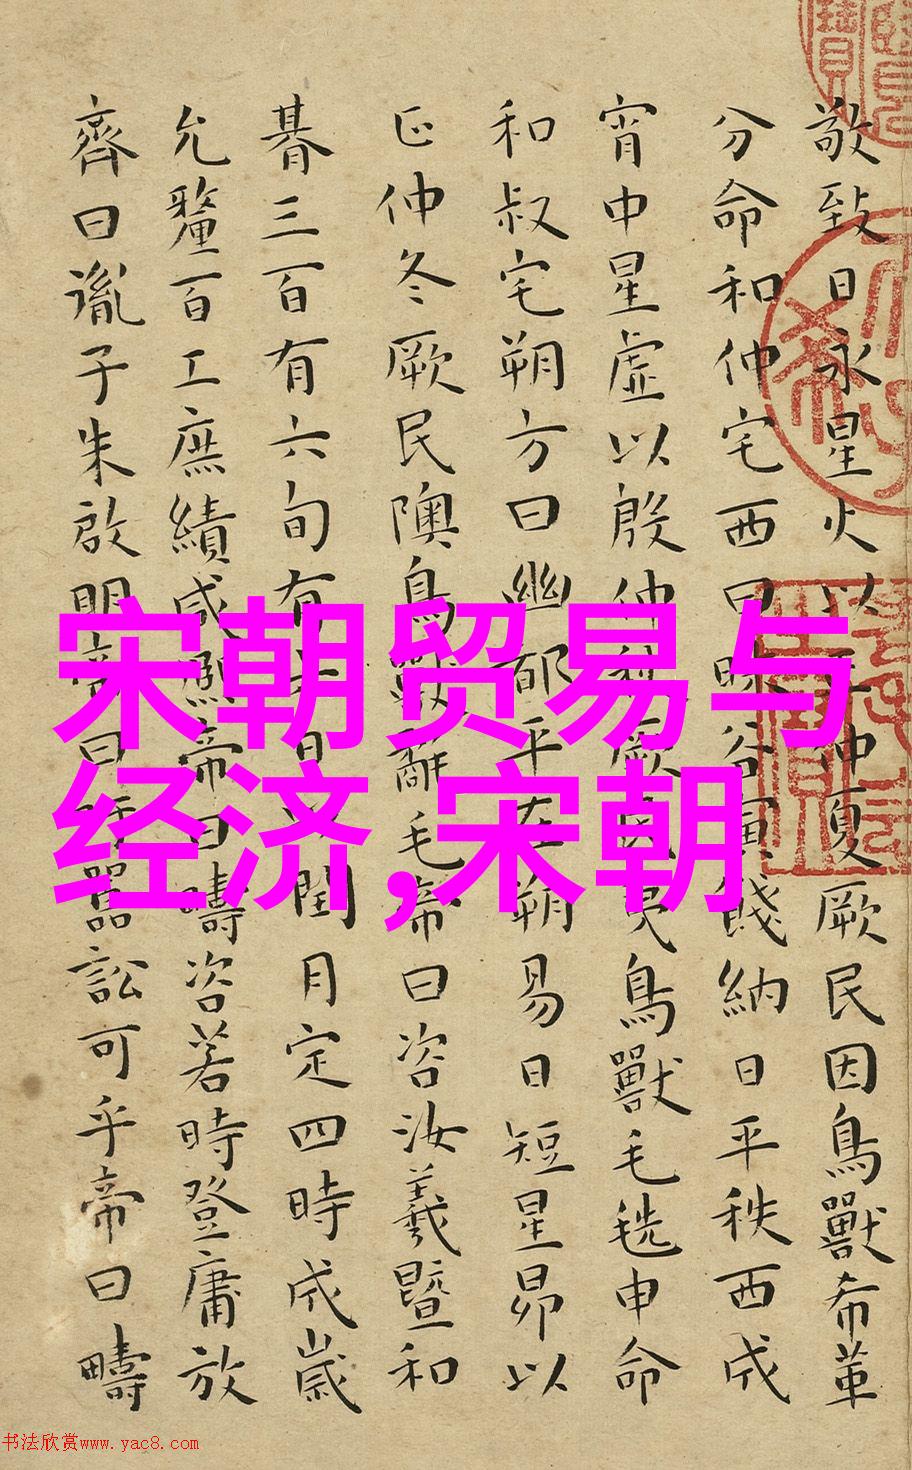 敬致日永星火以仲夏厥民因鳥獸希革
分命和仲宅西曰昧谷寅餞納日平秩西成
宵中星虛以殷仲秋厥民夷鳥獸毛毨申命
和叔宅朔方曰幽都平在朔易日短星昴以
正仲冬厥民隩鳥獸毛帝曰咨汝羲暨和
朞三百有六旬有日閏月定四時成歲
允釐百工庶績咸熙帝曰疇咨若時登庸放
齊曰胤子朱啟明帝曰嚚訟可乎帝曰疇
宋朝贸易与
经济,宋朝
书法欣赏www.yac8.com